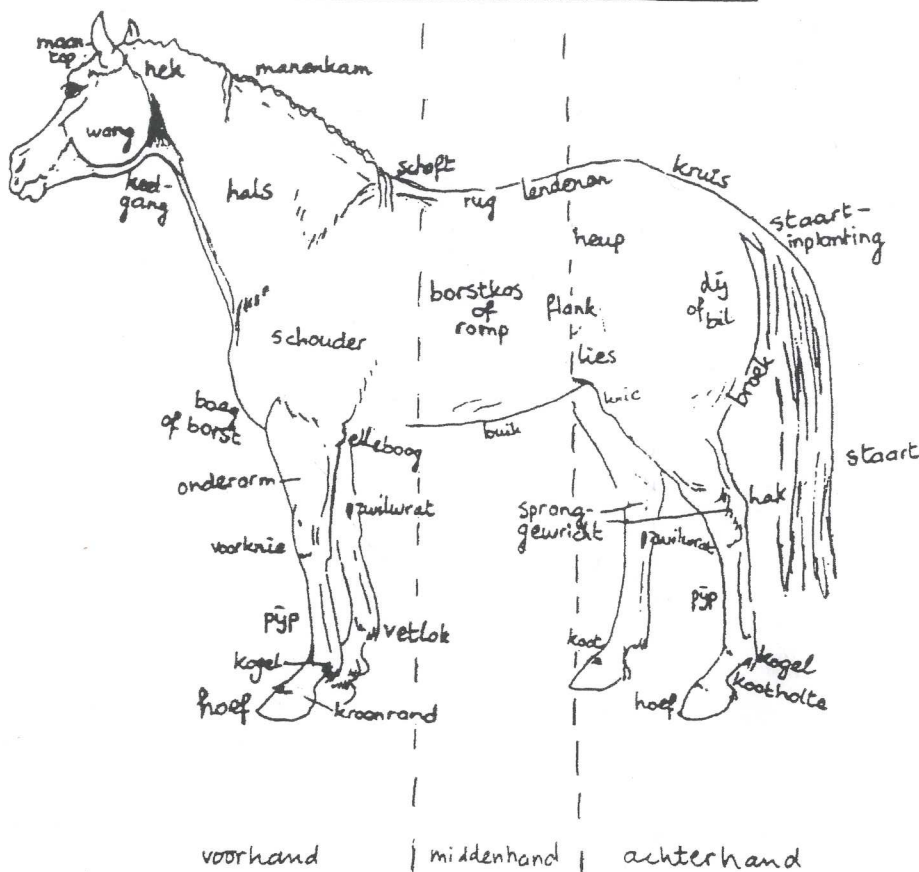 maan-
top
nek
manenkam
wang
keel-
gang
hals
schoft
rug
lendenen
kruis
staart-
inplanting
heup
borstkas
of
romp
flank
dij
of bil
schouder
lies
knie
broek
boeg
of borst
buik
elleboog
staart
onderarm
zwilwrat
hak
sprong-
gewricht
voorknie
zwilwrat
pijp
pijp
vetlok
koot
kogel
kogel
kootholte
hoef
kroonrand
hoef
voorhand
middenhand
achterhand